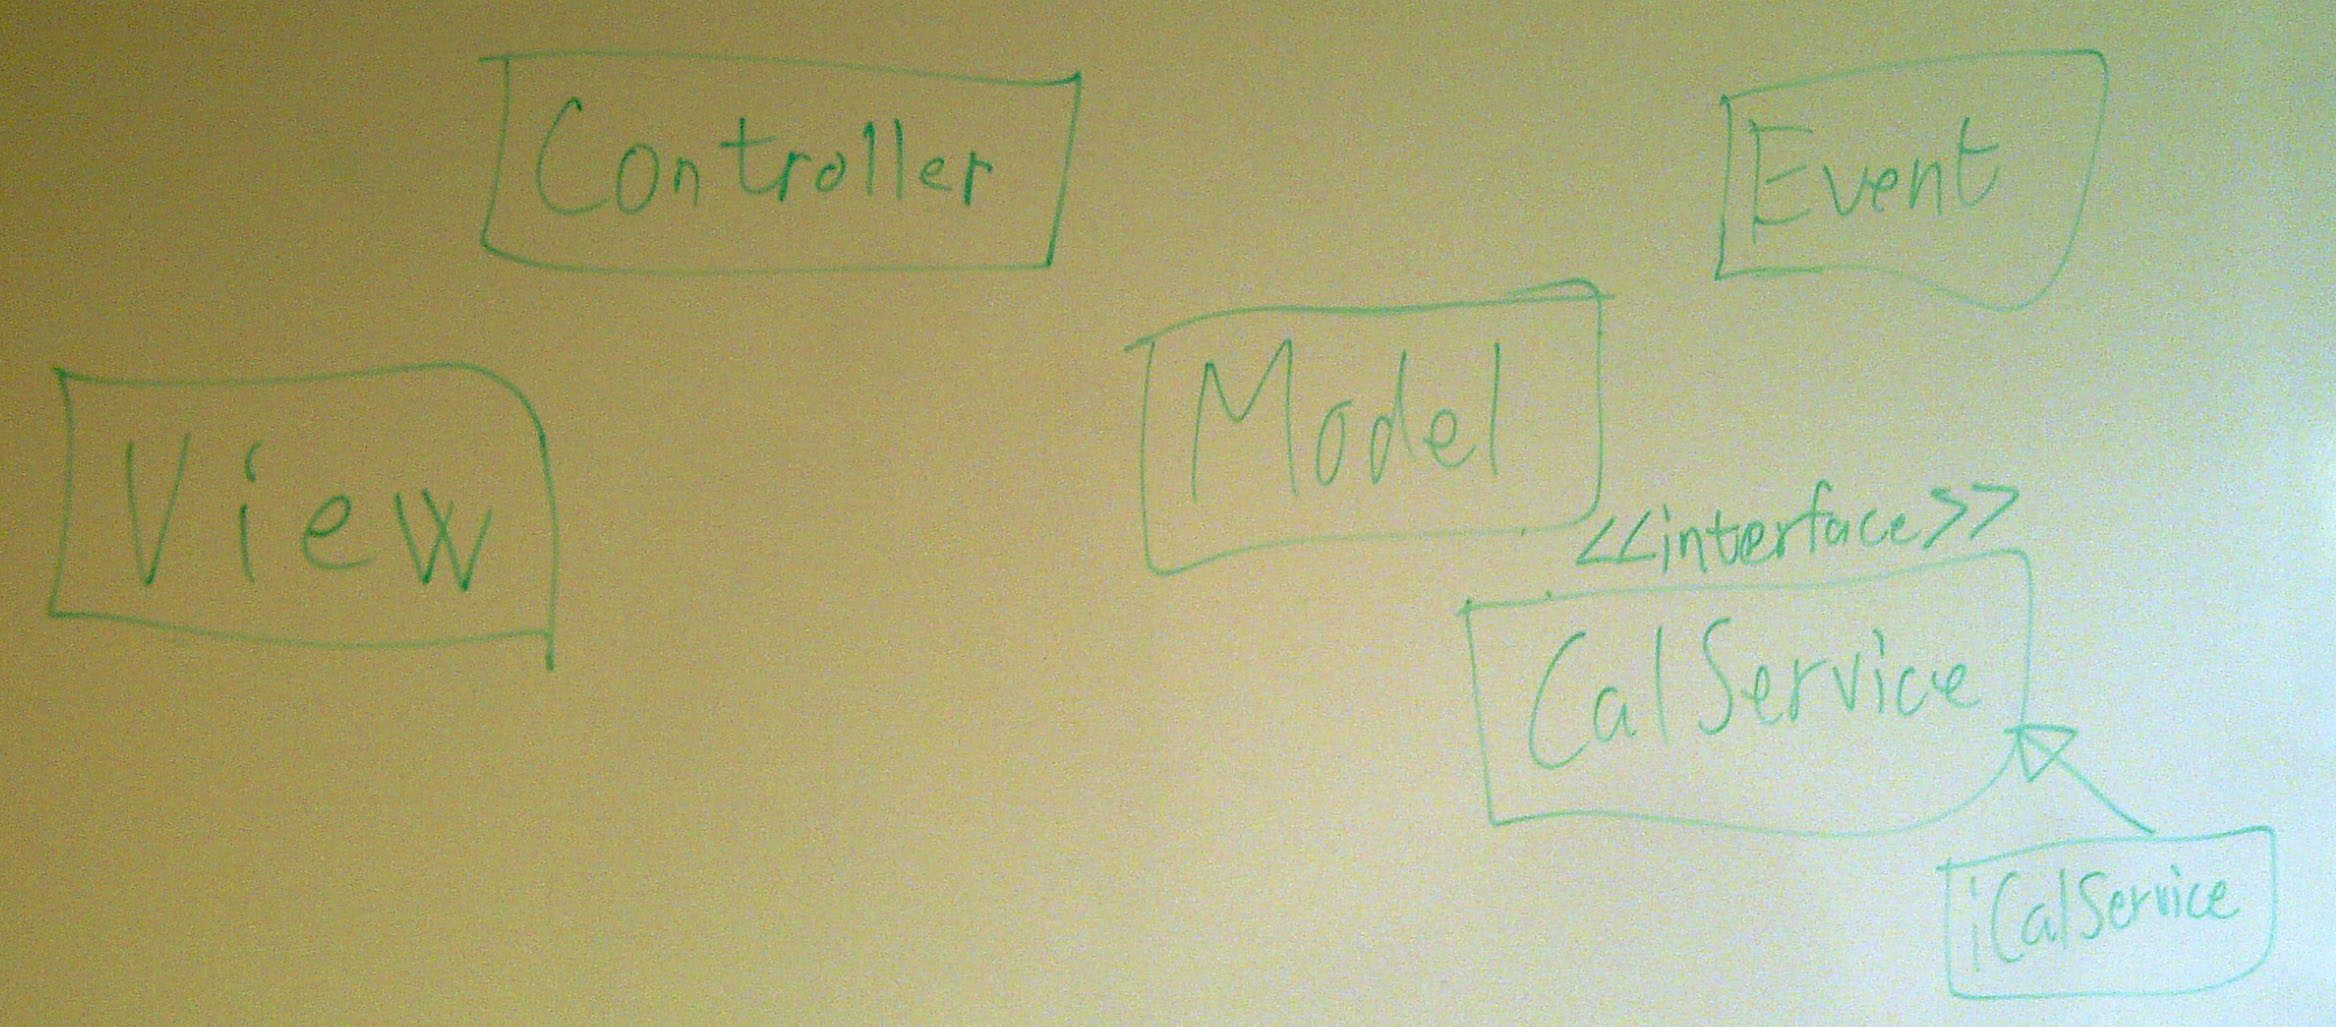 Controller
Event
Model
View
<<interface>>
CalService
iCalService